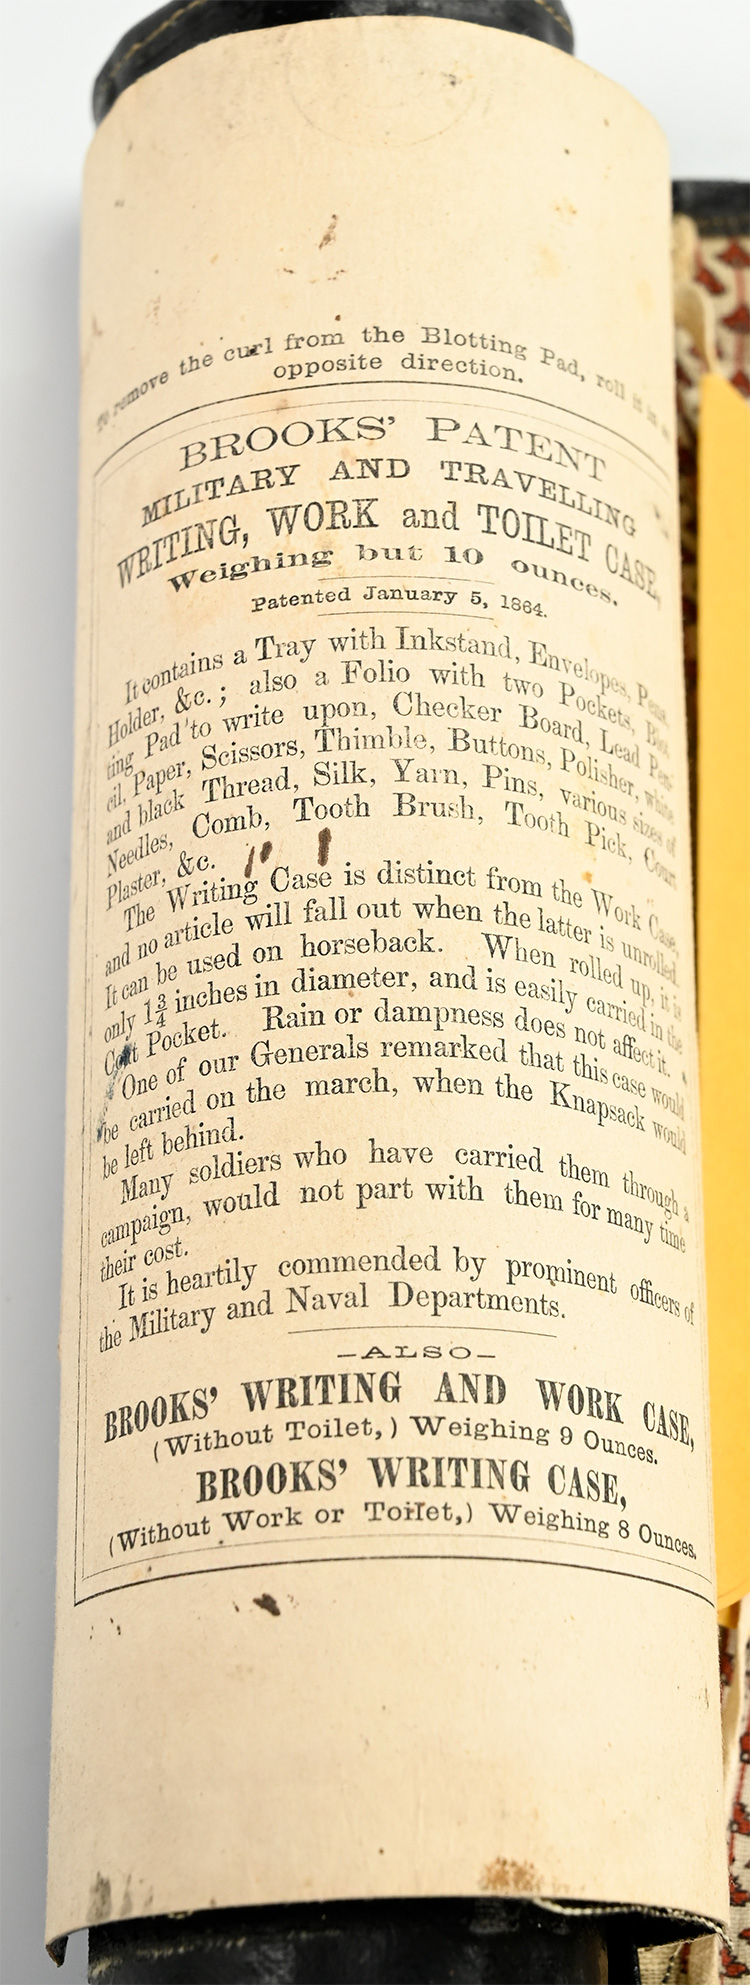 To remove the curl from the Blotting Pad, roll it in
opposite direction.
BROOKS' PATENT
MILITARY AND TRAVELLING
WRITING, WORK and TOILET CASE,
Weighing but 10 ounces.
Patented January 5, 1864.
It contains a Tray with Inkstand, Envelopes, Pens,
Holder, &c.; also a Folio with two Pockets, Blot
ting Pad to write upon, Checker Board, Lead Pen-
cil, Paper, Scissors, Thimble, Buttons, Polisher, white
and black Thread, Silk, Yarn, Pins, various sizes of
Needles, Comb, Tooth Brush, Tooth Pick, Court
Plaster, &c.
The Writing Case is distinct from the Work Case,
and no article will fall out when the latter is unrolled.
It can be used on horseback. When rolled up, it is
only 1¾ inches in diameter, and is easily carried in the
Coat Pocket. Rain or dampness does not affect it.
One of our Generals remarked that this case would
be carried on the march, when the Knapsack would
be left behind.
Many soldiers who have carried them through a
campaign, would not part with them for many time
their cost.
It is heartily commended by prominent officers of
the Military and Naval Departments.
—ALSO—
BROOKS' WRITING AND WORK CASE,
(Without Toilet,) Weighing 9 Ounces.
BROOKS' WRITING CASE,
(Without Work or Toilet,) Weighing 8 Ounces.